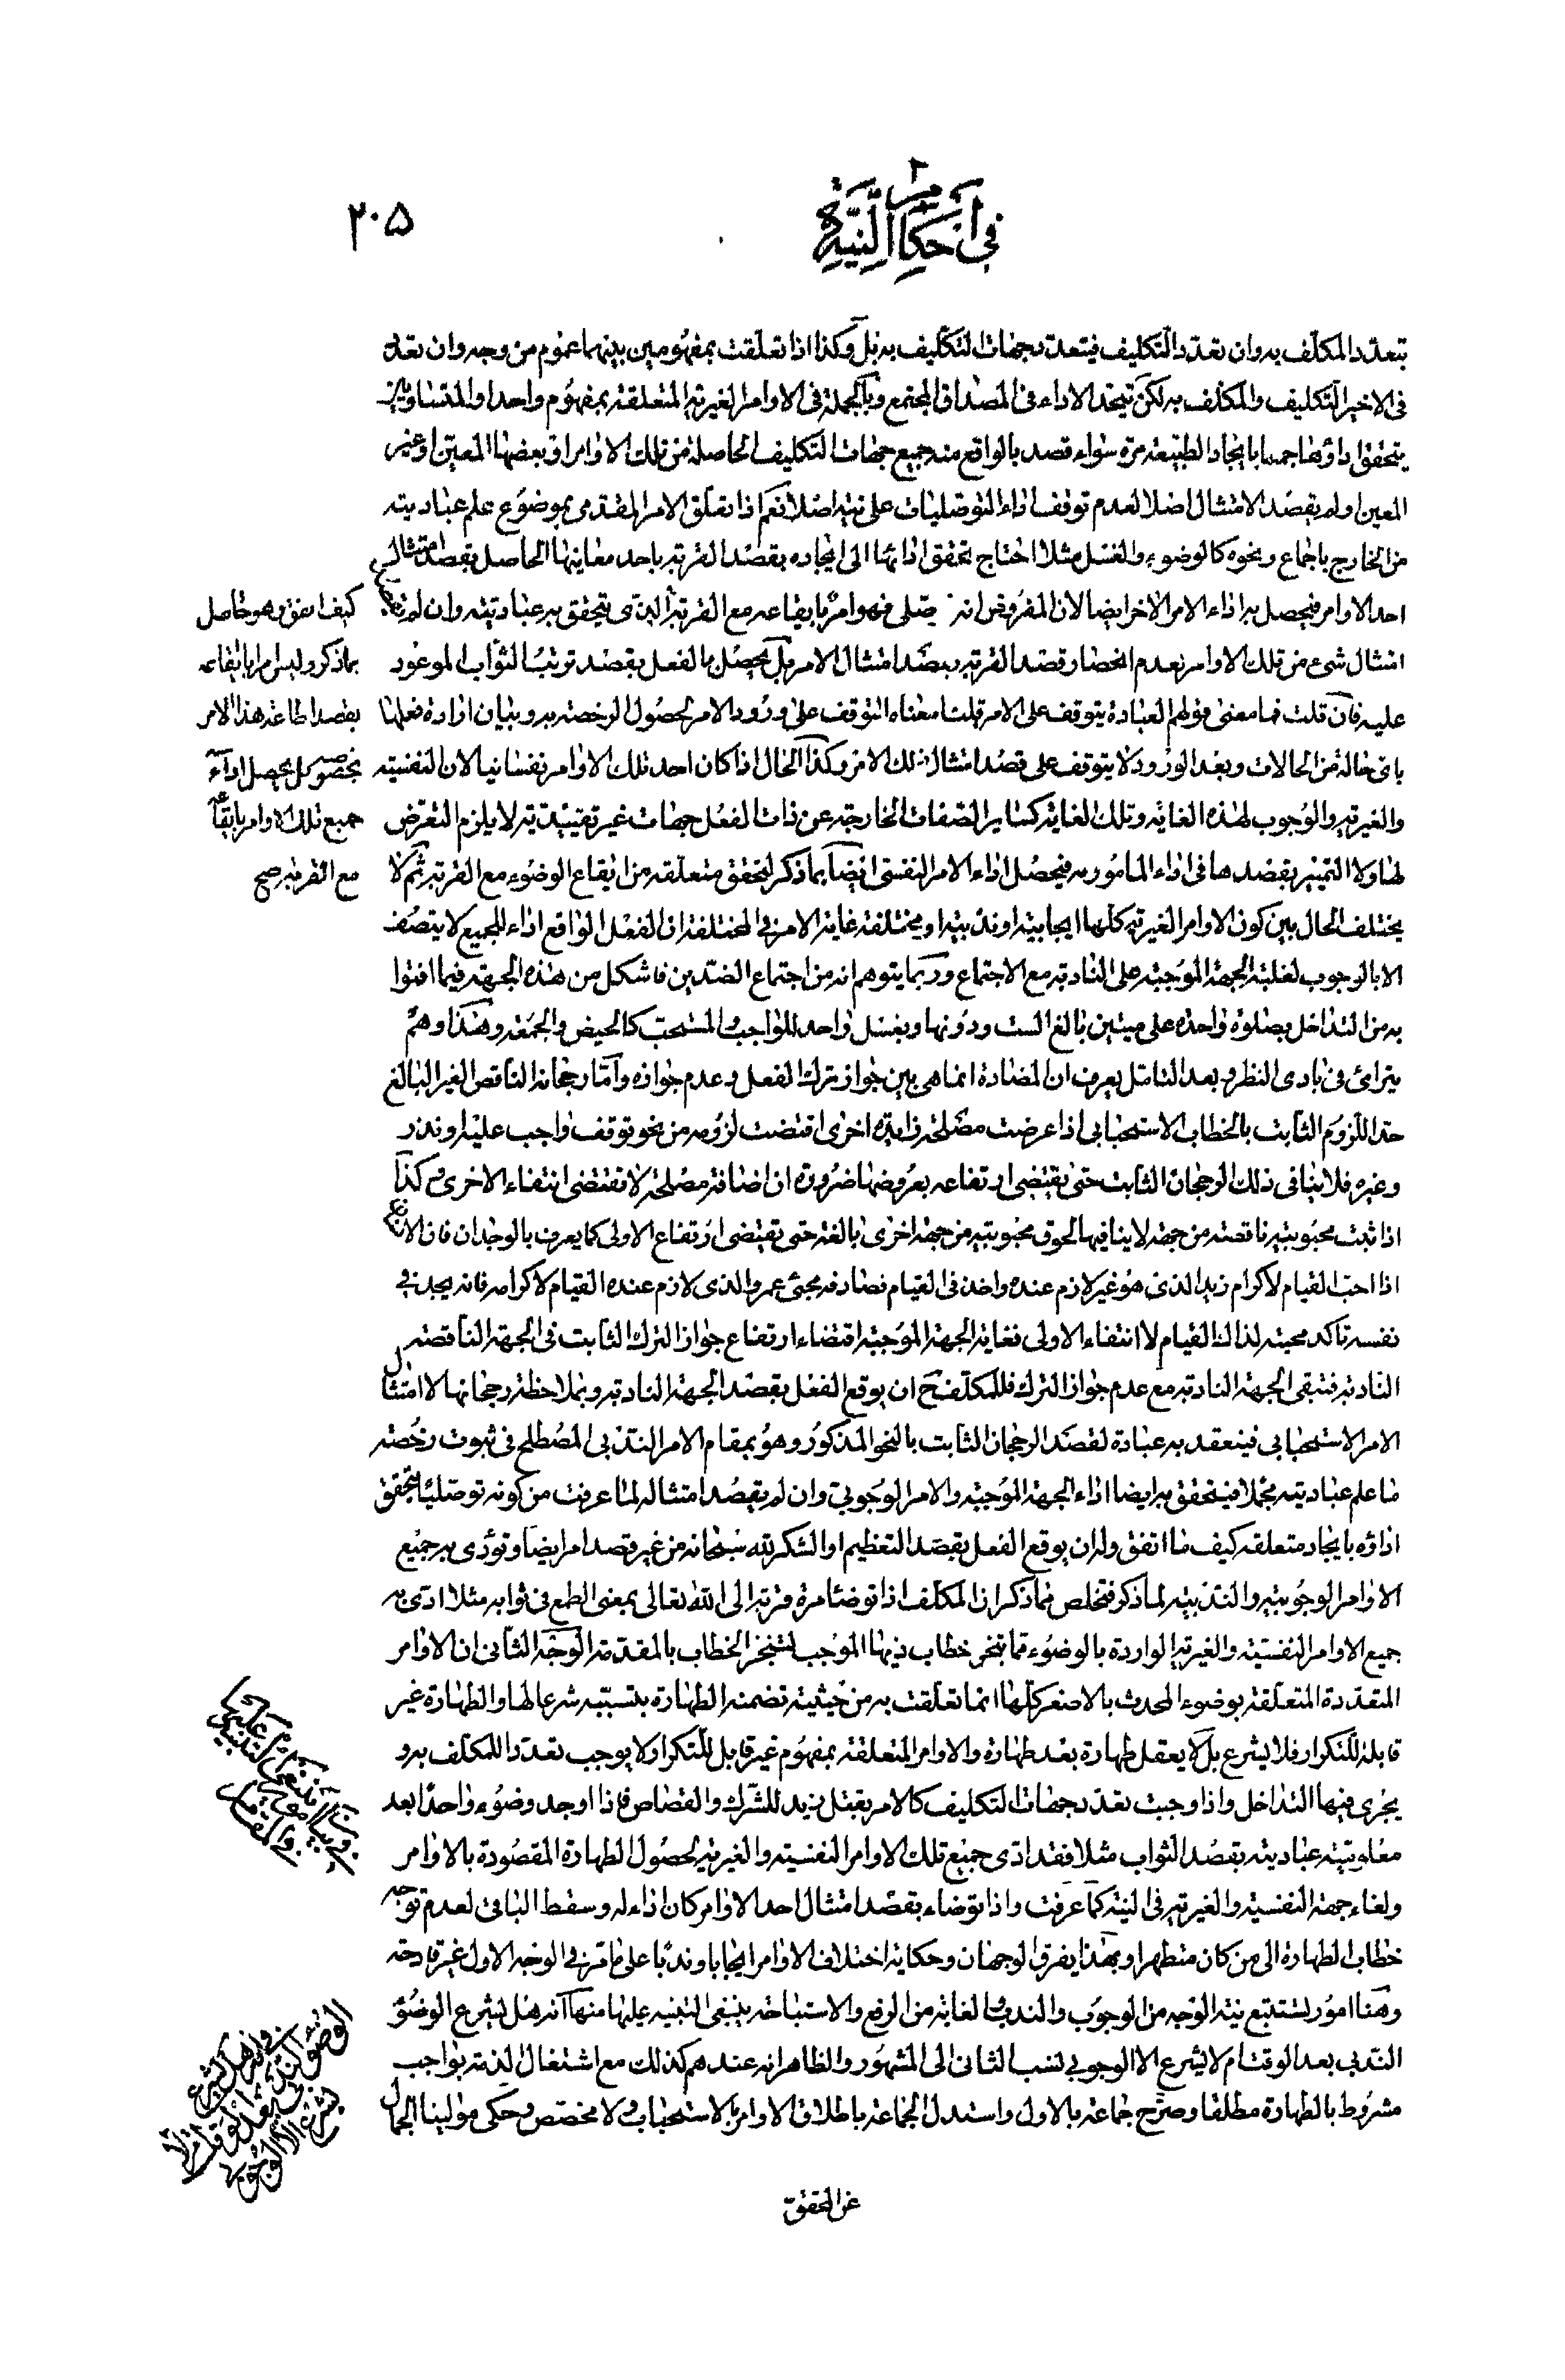 في أحكام النية
٢٠٥
بتعدّد المكلّف به وان تعدّد التكليف فيتعدّد جهات التكليف به بل وكذا اذا تعلّقت بمفهومين بينهما عموم من وجه وان تعدّد
في الاخير التكليف والمكلف به لكن يتحد الاداء في المصداق المجتمع وبالجملة في الاوامر الغيرية المتعلقة بمفهوم واحد او المتساويين
يتحقق اداؤها جمعا بايجاد الطبيعة مرة سواء قصد بالواقع منه جميع جهات التكليف الحاصلة من تلك الاوامر او بعضها المعين او غير
المعين او لم يقصد الامتثال اصلا لعدم توقف اداء التوصليات على نية اصلا نعم اذا تعلق الامر المقدمي بموضوع علم عباديته
من الخارج باجماع ونحوه كالوضوء والغسل مثلا احتاج تحقق ادائها الى ايجاده بقصد القربة باحد معانيها الحاصل بقصد امتثال
احد الاوامر فيحصل به اداء الامر الاخر ايضا لان المفروض انه توصلي فهو امر بايقاعه مع القربة الذي يتحقق به عباديته وان لم
امتثال شيء من تلك الاوامر لعدم انحصار قصد القربة بقصد امتثال الامر بل يحصل بالفعل بقصد ترتب الثواب الموعود
عليه فان قلت فما معنى قولهم العبادة يتوقف على الامر قلت معناه التوقف على ورود الامر لحصول الرخصة به وبيان ارادة فعلها
باي حالة من الحالات وبعد الورود لا يتوقف على قصد امتثال ذلك الامر وكذا الحال اذا كان احد تلك الاوامر نفسانيا لان النفسية
والغيرية والوجوب لهذه الغاية وتلك الغاية كساير الصفات الخارجة عن ذات الفعل جهات غير تقييدية لا يلزم التعرض
لها ولا التميز بقصدها في اداء المامور به فيحصل اداء الامر النفسي ايضا بما ذكر لتحقق متعلقه من ايقاع الوضوء مع القربة ثم لا
يختلف الحال بين كون الاوامر الغيرية كلها ايجابية او ندبية او مختلفة غاية الامر في المختلفة ان الفعل الواقع اداء للجميع لا يتصف
الا بالوجوب لغلبة الجهة الموجبة على النادبة مع الاجتماع وربما يتوهم انه من اجتماع الضدين فاشكل من هذه الجهة فيما افتوا
به من التداخل بصلوة واحدة على ميتين بالغ الست ودونها وبغسل واحد للواجب والمستحب كالحيض والجمعة وهذا وهم
يترائ في بادي النظر وبعد التامل يعرف ان المضادة انما هي بين جواز ترك الفعل وعدم جوازه واما رجحانه الناقص الغير البالغ
حد اللزوم الثابت بالخطاب الاستحبابي اذا عرضت مصلحة زايدة اخرى اقتضت لزومه من نحو توقف واجب عليه او نذر
وغيره فلا ينافي ذلك الرجحان الثابت حتى يقتضي ارتفاعه بعروضها ضرورة ان اضافة مصلحة لا تقتضي انتفاء الاخرى وكذا
اذا ثبت محبوبية ناقصة من جهة لا ينافيها لحوق محبوبية من جهة اخرى بالغة حتى يقتضي ارتفاع الاولى كما يعرف بالوجدان فان الانسان
اذا احب القيام لاكرام زيد الذي هو غير لازم عنده واخذ في القيام فصادفه مجئ عمرو الذي لازم عنده القيام لاكرامه فانه يجد في
نفسه تاكد محبته لذلك القيام لا انتفاء الاولى فغاية الجهة الموجبة اقتضاء ارتفاع جواز الترك الثابت في الجهة الناقصة
النادبة فتبقى الجهة النادبة مع عدم جواز الترك فللمكلف ح ان يوقع الفعل بقصد الجهة النادبة وبملاحظة رجحانها لا امتثال
الامر الاستحبابي فينعقد به عبادة لقصد الرجحان الثابت بالنحو المذكور وهو بمقام الامر الندبي المصطلح في ثبوت رخصة
ما علم عباديته مجملا فيتحقق به ايضا اداء الجهة الموجبة والامر الوجوبي وان لم يقصد امتثاله لما عرفت من كونه توصليا يتحقق
اداؤه بايجاد متعلقه كيف ما اتفق وله ان يوقع الفعل بقصد التعظيم او الشكر لله سبحانه من غير قصد امر ايضا وتؤدى به جميع
الاوامر الوجوبية والندبية لما ذكر فتخلص مما ذكر ان المكلف اذا توضا مرة قربة الى الله تعالى بمعنى الطمع في ثوابه مثلا ادى به
جميع الاوامر النفسية والغيرية الواردة بالوضوء مما تنجز خطاب ذيها الموجب لتنجز الخطاب بالمقدمة الوجه الثاني ان الاوامر
المتعددة المتعلقة بوضوء المحدث بالاصغر كلها انما تعلقت به من حيثية تضمنه الطهارة بتسببه شرعا لها والطهارة غير
قابلة للتكرار فلا يشرع بل لا يعقل طهارة بعد طهارة والاوامر المتعلقة بمفهوم غير قابل للتكرار لا يوجب تعدد المكلف به و
يجري فيها التداخل واذا وجبت تعدد جهات التكليف كالامر بقتل زيد للشرك والقصاص فاذا اوجد وضوء واحدا بعد
معلومية عباديته بقصد الثواب مثلا فقد ادى جميع تلك الاوامر النفسية والغيرية لحصول الطهارة المقصودة بالاوامر
ولغاء جهة النفسية والغيرية في النية كما عرفت واذا توضاء بقصد امتثال احد الاوامر كان اداء له وسقط الباقي لعدم توجه
خطاب الطهارة الى من كان متطهرا وبهذا يفرق الوجهان وحكاية اختلاف الاوامر ايجابا وندبا على ما مر في الوجه الاول غير قادحة
وهنا امور تستتبع نية الوجه من الوجوب والندب والغاية من الرفع والاستباحة ينبغي التنبيه عليها منها انه هل يشرع الوضوء
الندبي بعد الوقت ام لا يشرع الا الوجوبي نسب الثاني الى المشهور والظاهر انه عندهم كذلك مع اشتغال الذمة بواجب
مشروط بالطهارة مطلقا وصرح جماعة بالاول واستدل الجماعة باطلاق الاوامر بالاستحباب ولا مخصص وحكى مولينا الجمال
عن المحقق
كيف اتفق وهو حاصل
بما ذكر وليس امرا بايقاعه
بقصد اطاعة هذا الامر
بخصوصه كل يحصل اداء
جميع تلك الاوامر بايقاعه
مع القربة صح
في انه هل يشرع
الوضوء الندبي بعد الوقت ام لا
يشرع الا الوجوبي